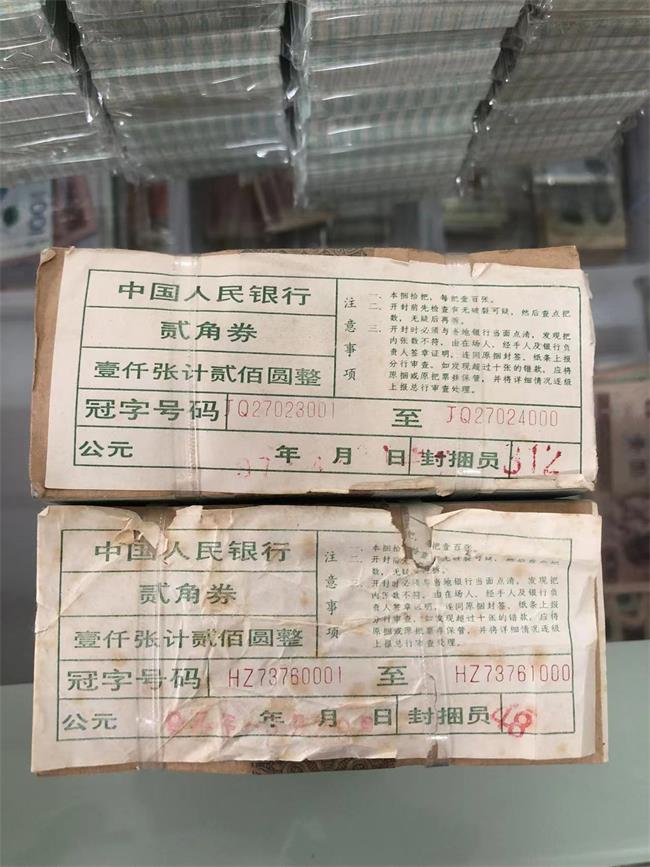 中国人民银行
贰角券
壹仟张计贰佰圆整
注意事项
一、本捆拾把，每把壹百张。
二、开封前先检查有无破裂可疑，然后查点把
数，无疑后再拆。
三、开封时必须与各地银行当面点清，发现把
内张数不符，由在场人，经手人及银行负
责人签章证明，连同原捆封签、纸条上报
分行审查。如发现超过十张的错款，应将
原捆或原把票券保管，并将详细情况逐级
上报总行审查处理。
冠字号码 JQ27023001 至 JQ27024000
公元 年 月 日 封捆员 312
中国人民银行
贰角券
壹仟张计贰佰圆整
注意事项
一、本捆拾把，每把壹百张。
数，无疑
三、开封时必须与各地银行当面点清，发现把
内张数不符，由在场人，经手人及银行负
责人签章证明，连同原捆封签、纸条上报
分行审查。如发现超过十张的错款，应将
原捆或原把票券保管，并将详细情况逐级
上报总行审查处理。
冠字号码 HZ73760001 至 HZ73761000
公元 年 月 日 封捆员 48